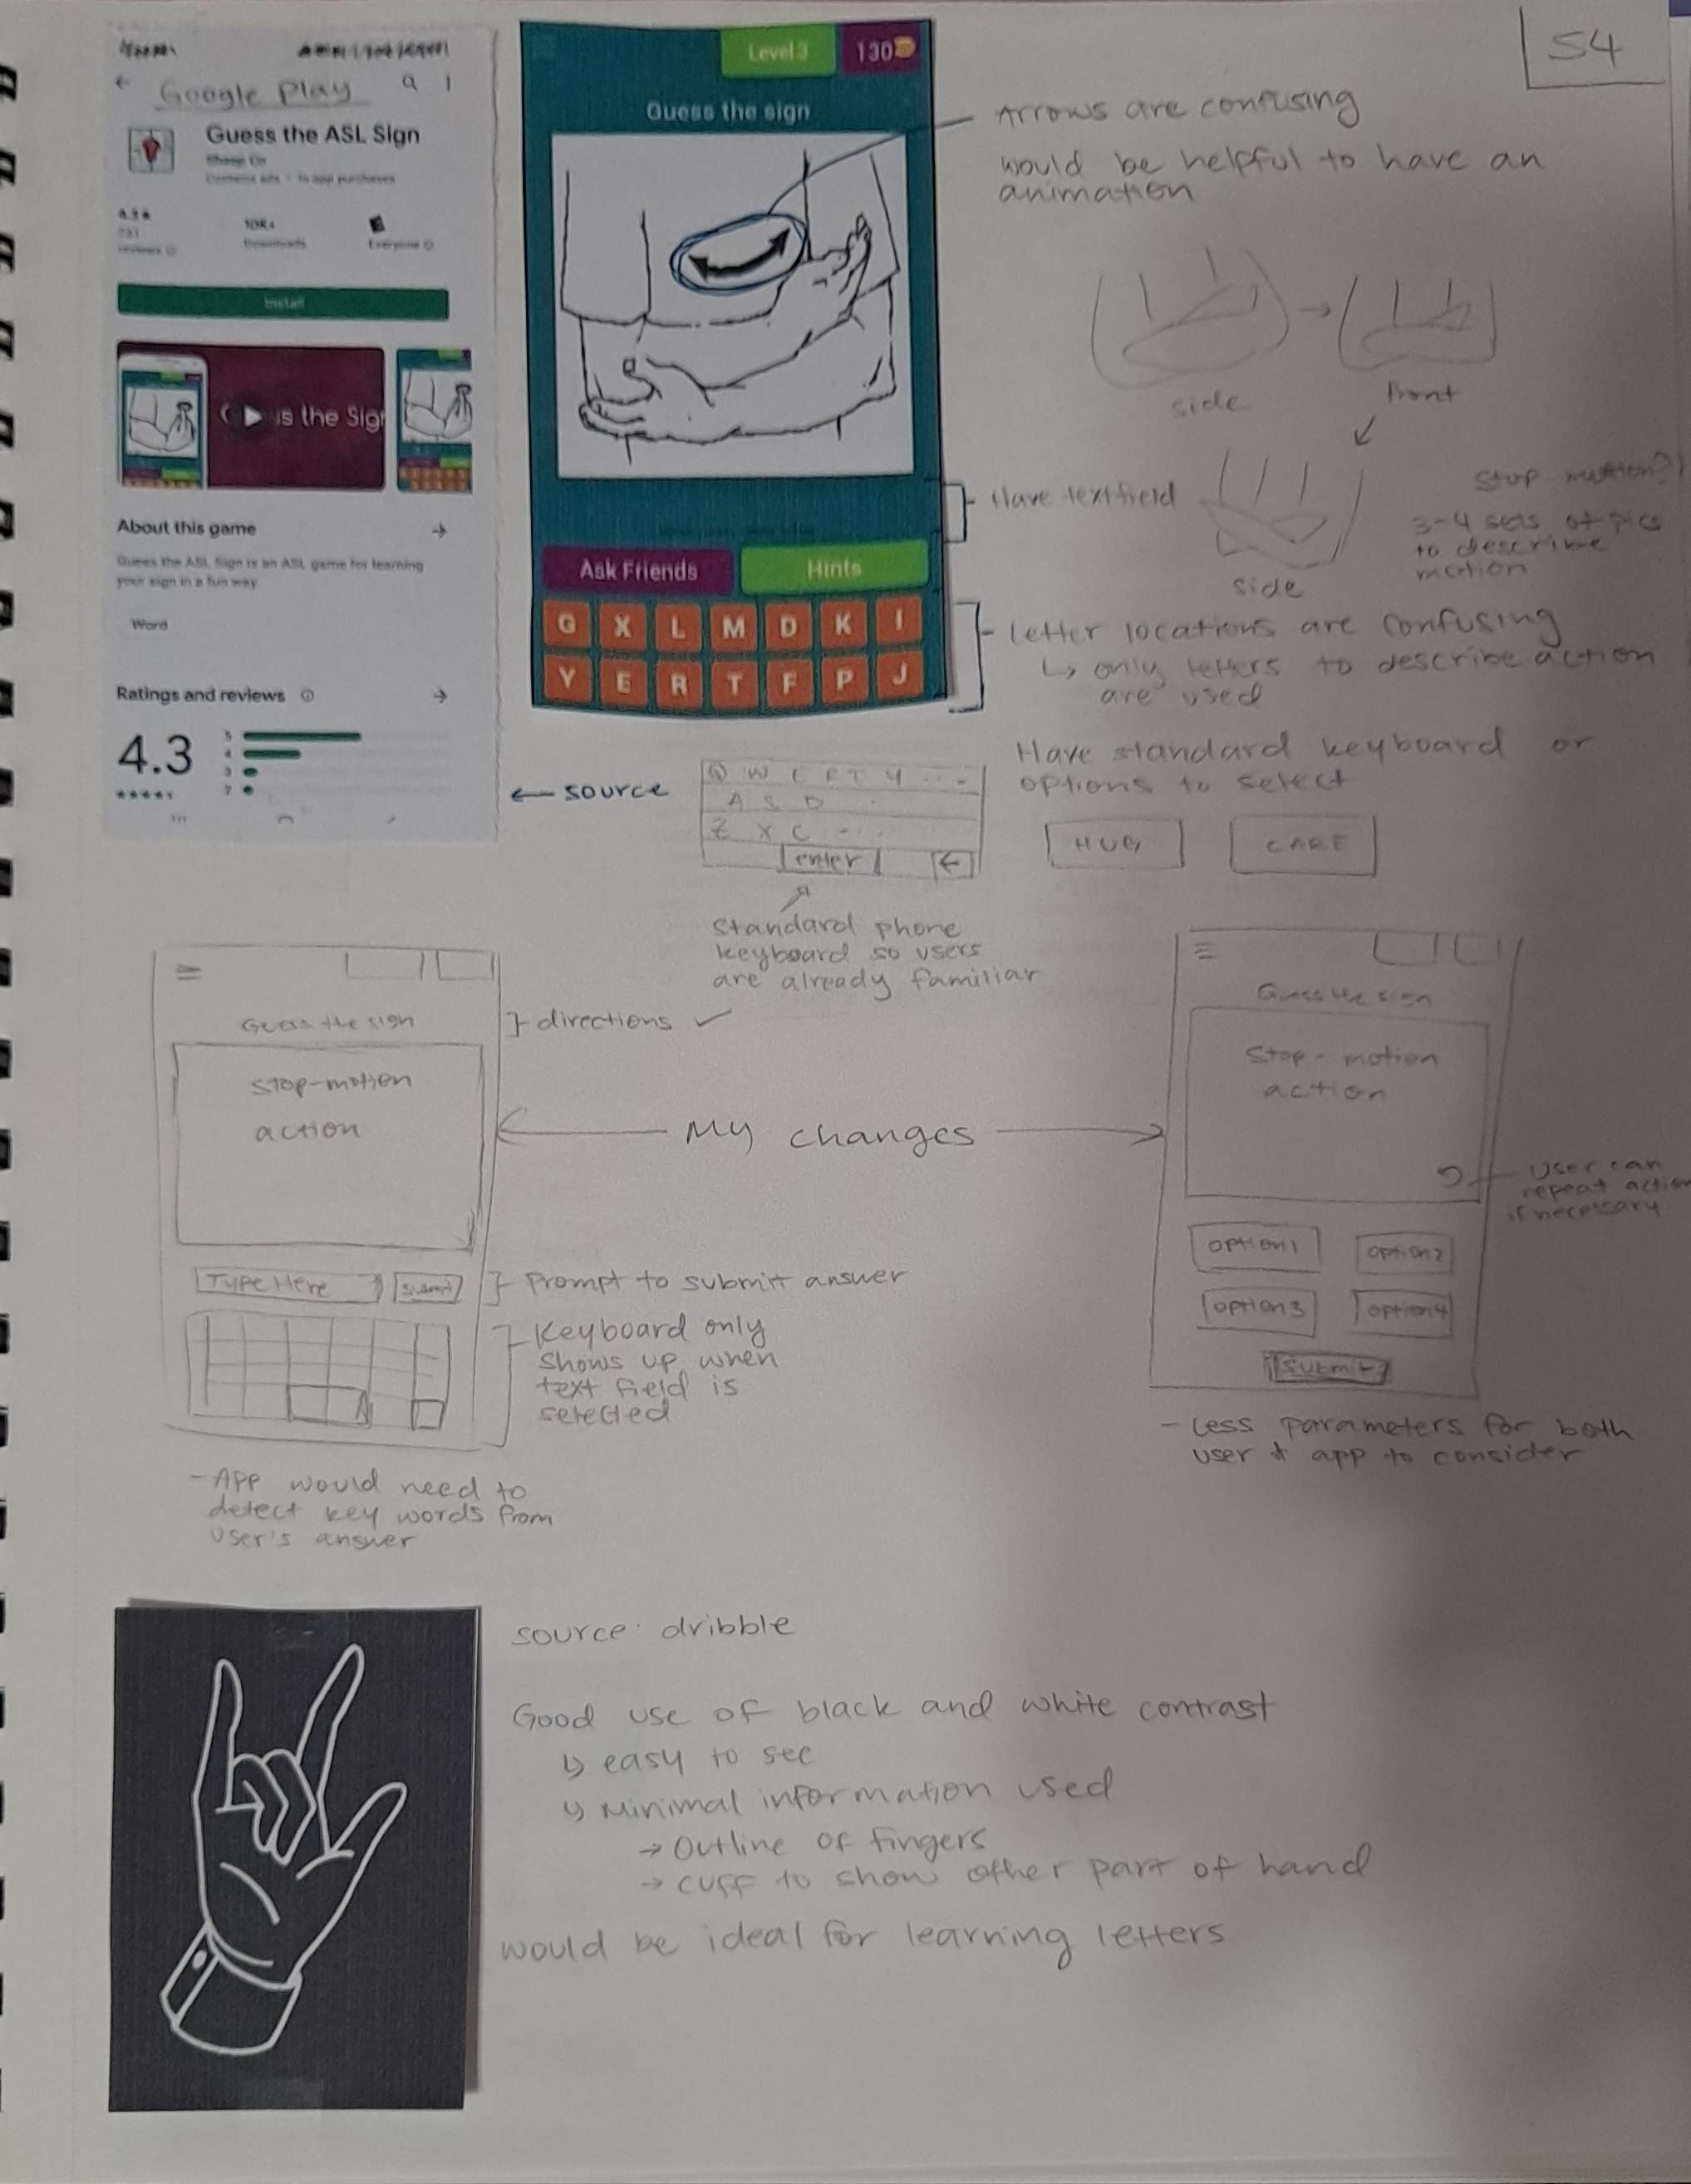 54
Google Play
Guess the ASL Sign
Contains ads · In app purchases
4.3
731
reviews
10K+
Downloads
Everyone
Install
is the Sign
About this game
Guess the ASL Sign is an ASL game for learning
your sign in a fun way.
Word
Ratings and reviews
4.3
5
4
3
2
Level 3
130
Guess the sign
Ask Friends
Hints
G X L M D K I
Y E R T F P J
Arrows are confusing
would be helpful to have an
animation
side
front
side
Stop motion?
3-4 sets of pics
to describe
motion
Have textfield
Letter locations are confusing
↳ only letters to describe action
are used
Have standard keyboard or
options to select
HUG
CARE
← source
Q W E R T Y ...
A S D .
Z X C ...
enter
←
Standard phone
keyboard so users
are already familiar
Guess the sign
} directions ✓
Stop-motion
action
My changes
Guess the sign
Stop-motion
action
User can
repeat action
if necessary
Type Here
Submit
} Prompt to submit answer
Keyboard only
shows up when
text field is
selected
option1
option2
option3
option4
Submit
- App would need to
detect key words from
user's answer
- Less parameters for both
user & app to consider
source: dribble
Good use of black and white contrast
↳ easy to see
↳ Minimal information used
→ Outline of fingers
→ cuff to show other part of hand
would be ideal for learning letters